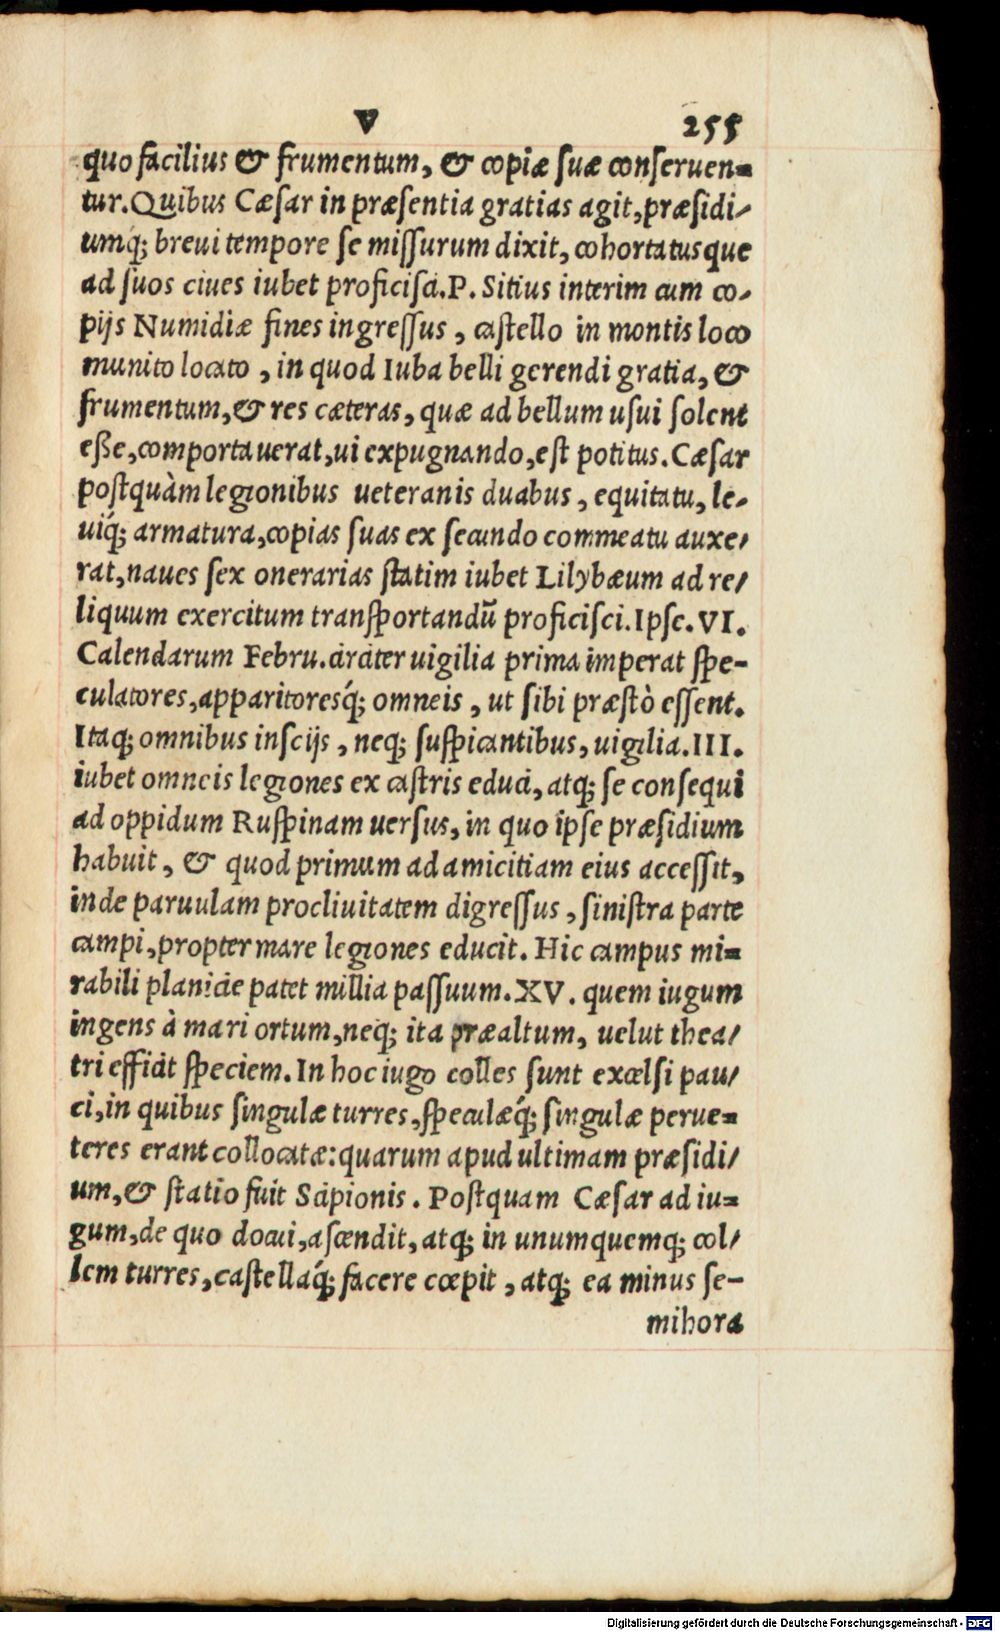 V 255
quo facilius & frumentum, & copiæ suæ conseruen=
tur. Quibus Cæsar in præsentia gratias agit, præsidi/
umq́; breui tempore se missurum dixit, cohortatusque
ad suos ciues iubet proficisci. P. Sitius interim cum co/
pijs Numidiæ fines ingressus, castello in montis loco
munito locato, in quod Iuba belli gerendi gratia, &
frumentum, & res cæteras, quæ ad bellum usui solent
eße, comportauerat, ui expugnando, est potitus. Cæsar
postquàm legionibus ueteranis duabus, equitatu, le/
uiq́; armatura, copias suas ex secundo commeatu auxe/
rat, naues sex onerarias statim iubet Lilybæum ad re/
liquum exercitum transportandū proficisci. Ipse. VI.
Calendarum Febru. circiter uigilia prima imperat spe-
culatores, apparitoresq́; omneis, ut sibi præstò essent.
Itaq; omnibus inscijs, neq; suspicantibus, uigilia. III.
iubet omneis legiones ex castris educi, atq; se consequi
ad oppidum Ruspinam uersus, in quo ipse præsidium
habuit, & quod primum ad amicitiam eius accessit,
inde paruulam procliuitatem digressus, sinistra parte
campi, propter mare legiones educit. Hic campus mi=
rabili planicie patet millia passuum. XV. quem iugum
ingens à mari ortum, neq; ita præaltum, uelut thea/
tri efficit speciem. In hoc iugo colles sunt excelsi pau/
ci, in quibus singulæ turres, speculæq́; singulæ perue=
teres erant collocatæ: quarum apud ultimam præsidi/
um, & statio fuit Scipionis. Postquam Cæsar ad iu=
gum, de quo docui, ascendit, atq; in unumquemq; col/
lem turres, castellaq́; facere cœpit, atq; ea minus se-
mihora
Digitalisierung gefördert durch die Deutsche Forschungsgemeinschaft - DFG